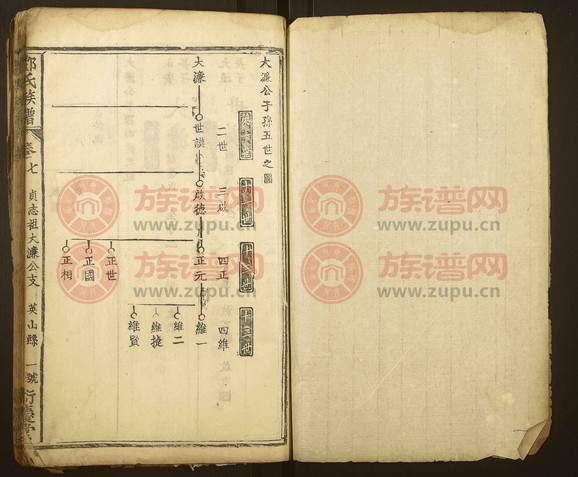 大濂公子孫五世之圖
二世
三啟
四正
四維
大濂
世謨
啟德
正元
維一
維二
維捷
維賢
正世
正國
正相
氏族譜
卷七
貞志祖大濂公支
英山縣
一號
族谱网
www.zupu.cn
族谱网
www.zupu.cn
族谱网
www.zupu.cn
族谱网
www.zupu.cn